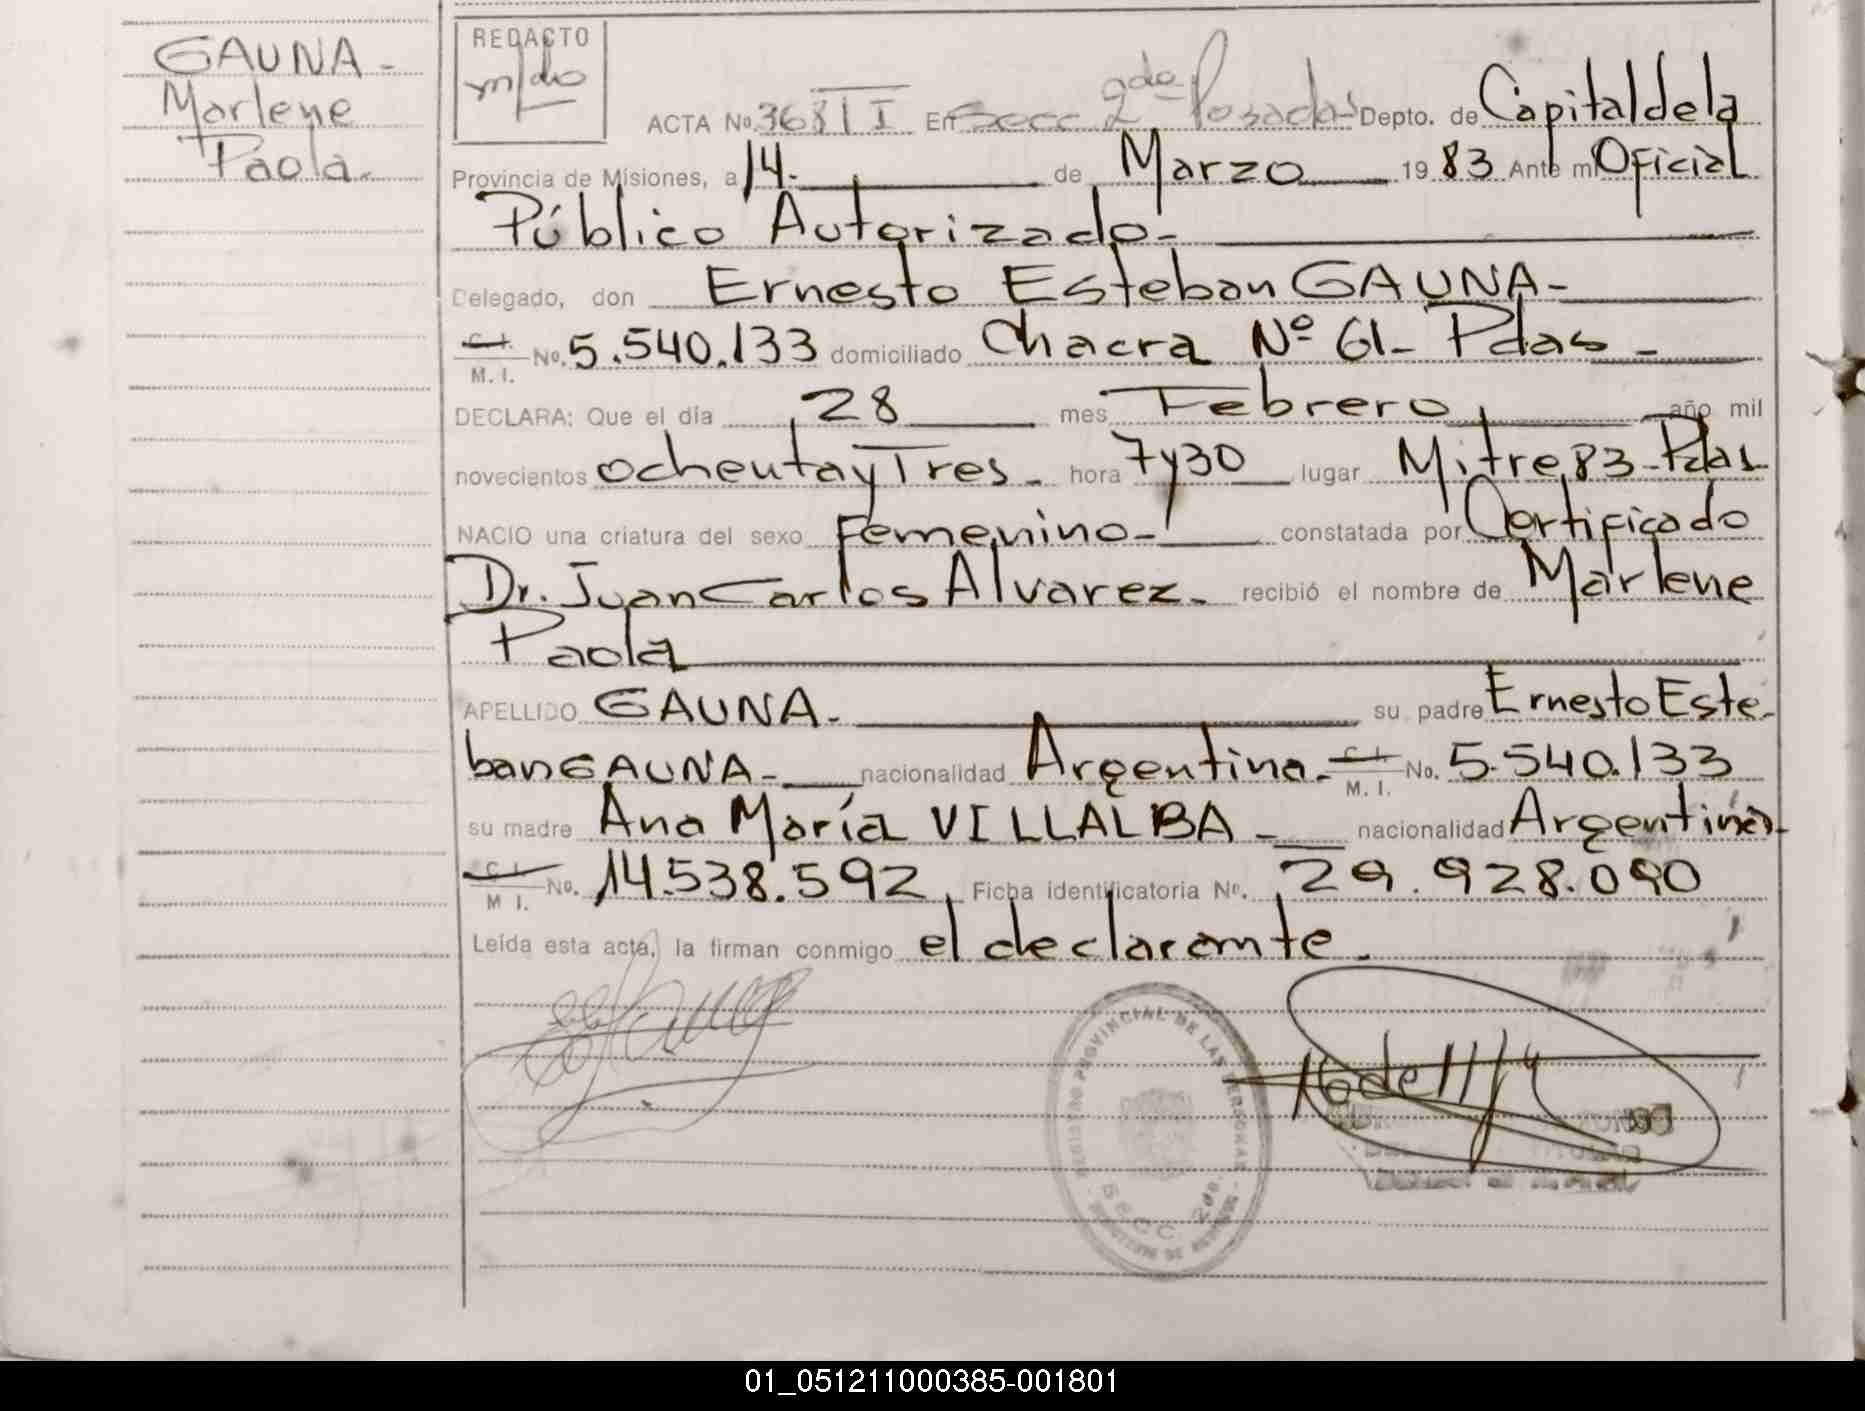 GAUNA-
Marlene
Paola.
REDACTO
ACTA No. 368 T I En Secc 2da Posadas Depto. de Capital de la
Provincia de Misiones, a 14. de Marzo 1983 Ante mi Oficial
Público Autorizado-
Delegado, don Ernesto Esteban GAUNA-
C. I.
M. I. No. 5.540.133 domiciliado Chacra Nº 61- Pdas-
DECLARA: Que el día 28 mes Febrero año mil
novecientos ochenta y Tres- hora 7y30 lugar Mitre 83-Pdas-
NACIO una criatura del sexo Femenino- constatada por Certificado
Dr. Juan Carlos Alvarez- recibió el nombre de Marlene
Paola
APELLIDO GAUNA- su padre Ernesto Este-
ban GAUNA- nacionalidad Argentina- C. I. No. 5.540.133
M. I.
su madre Ana María VILLALBA- nacionalidad Argentina-
C. I. No. 14.538.592 Ficha identificatoria Nº. 29.928.090
M. I.
Leída esta acta, la firman conmigo el declarante.
REGISTRO PROVINCIAL DE LAS PERSONAS
SECC. 2da.
01_051211000385-001801